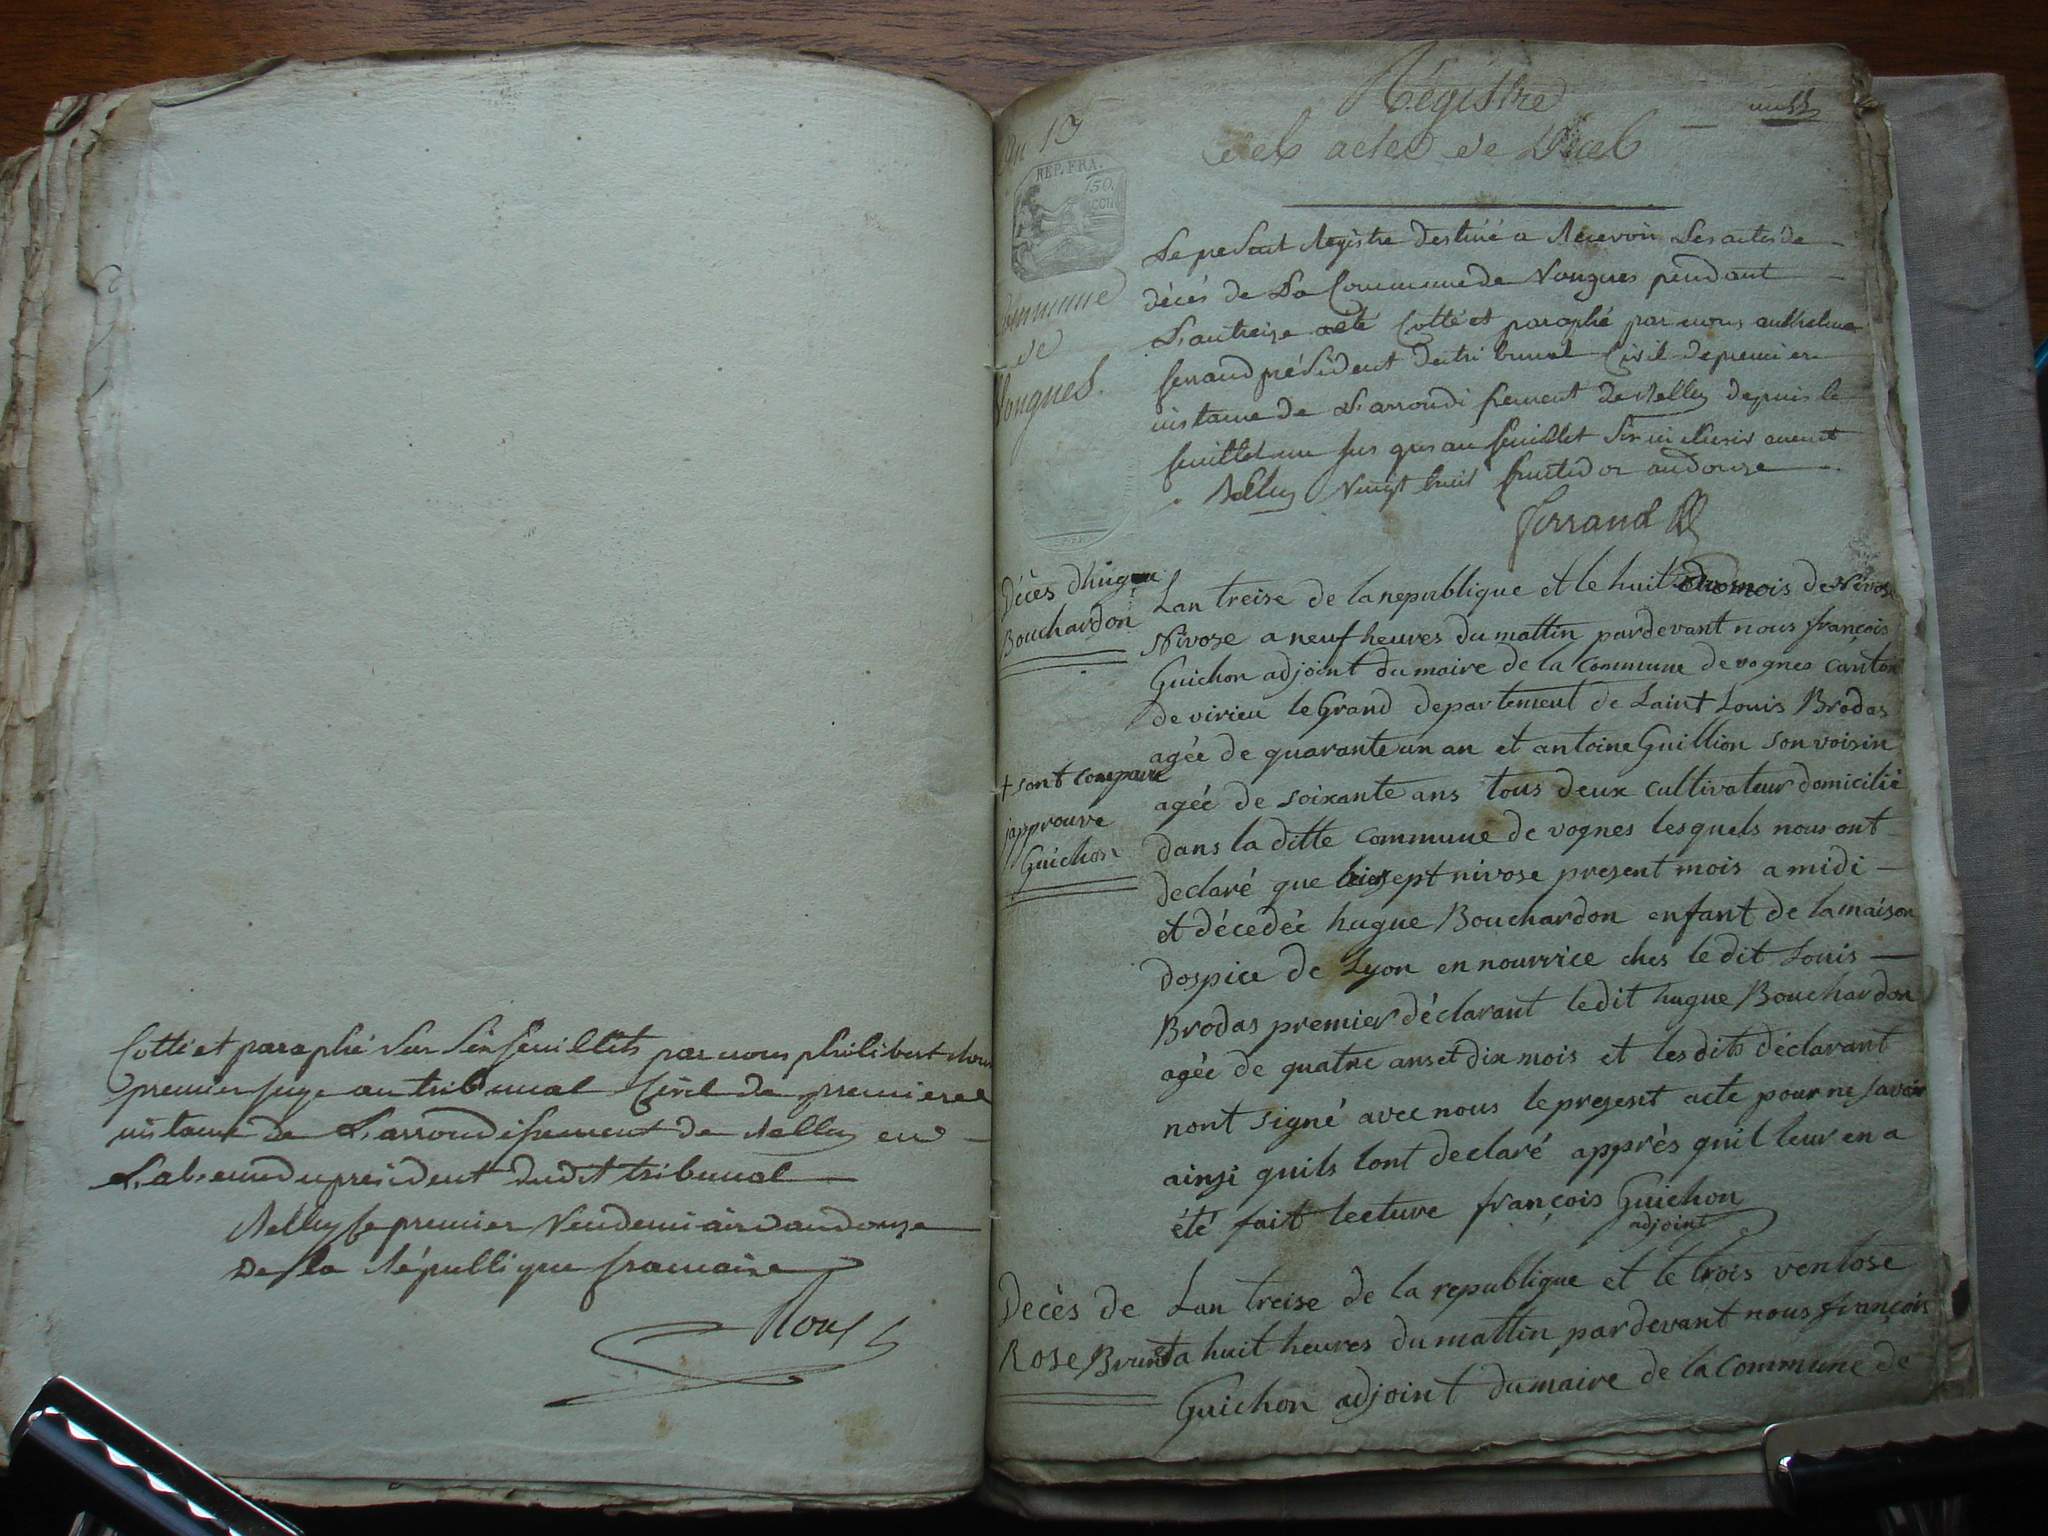 Cotté et paraphé sur six feuillets par nous philibert
premier juge au tribunal Civil de premiere
instance de L'arrondissement de Belley en
L'absence du président dudit tribunal
Belley le premier Vendemiaire an douze
De la République francaise
Roux
An 13
REP. FRA.
50
Commune
de
Vongnes.
Régistre
des actes de Décés
un
Le present Registre destiné a Recevoir Les actes de
décés de La Commune de Vongnes pendant
L'an treize a été Cotté et paraphé par nous anthelme
ferrand président du tribunal Civil de premiere
instance de L'arrondissement de Belley depuis le
feuillet un jusques au feuillet six inclusivement
Belley vingt huit fructidor an douze
ferrand
Décès dhugue
Bouchardon
Lan treise de la republique et le huit du mois de Nivose
Nivose a neuf heures du mattin pardevant nous françois
Guichon adjoint du maire de la Commune de vognes canton
de virieu le Grand departement de Laint Louis Brodas
agée de quarante un an et antoine Guillion son voisin
+ sont comparu
agée de soixante ans tous deux cultivateur domicilié
japprouve
Guichon
dans la ditte commune de vognes lesquels nous ont
declaré que hier sept nivose present mois a midi
et décedée hugue Bouchardon enfant de la maison
dospice de Lyon en nourrice ches le dit Louis
Brodas premier déclarant ledit hugue Bouchardon
agée de quatre ans et dix mois et les dits déclarant
nont signé avec nous le present acte pour ne savoir
ainsi quils lont declaré apprès quil leur en a
été fait lecture françois Guichon
adjoint
Decès de
Rose Brunet
Lan treise de la republique et le trois ventose
a huit heures du mattin pardevant nous françois
Guichon adjoint du maire de la commune de